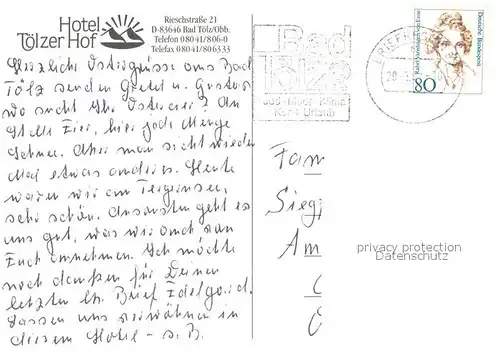 Hotel
Tölzer Hof
Rieschstraße 21
D-83646 Bad Tölz/Obb.
Telefon 08041/806-0
Telefax 08041/806333
Herzliche Ostergrüsse aus Bad
Tölz senden Gretel u. Gustav
wo sucht Ihr Ostereier? An
Stelle Eier, hier jede Menge
Schnee. Aber man sieht wieder
Mal etwas anderes. Heute
waren wir am Tegernsee,
sehr schön. Ansonsten geht es
uns gut, was wir auch von
Euch annehmen. Ich möchte
noch danken für Deinen
letzten lb. Brief Edelgard.
Lassen uns verwöhnen in
diesem Hotel - s. B.
Bad
Tölz
Bad Tölz Klima
Kur Urlaub
BRIEFZ
Deutsche Bundespost
Rahel Varnhagen von Ense
80
Fam
Sieg
Am
privacy protection
Datenschutz